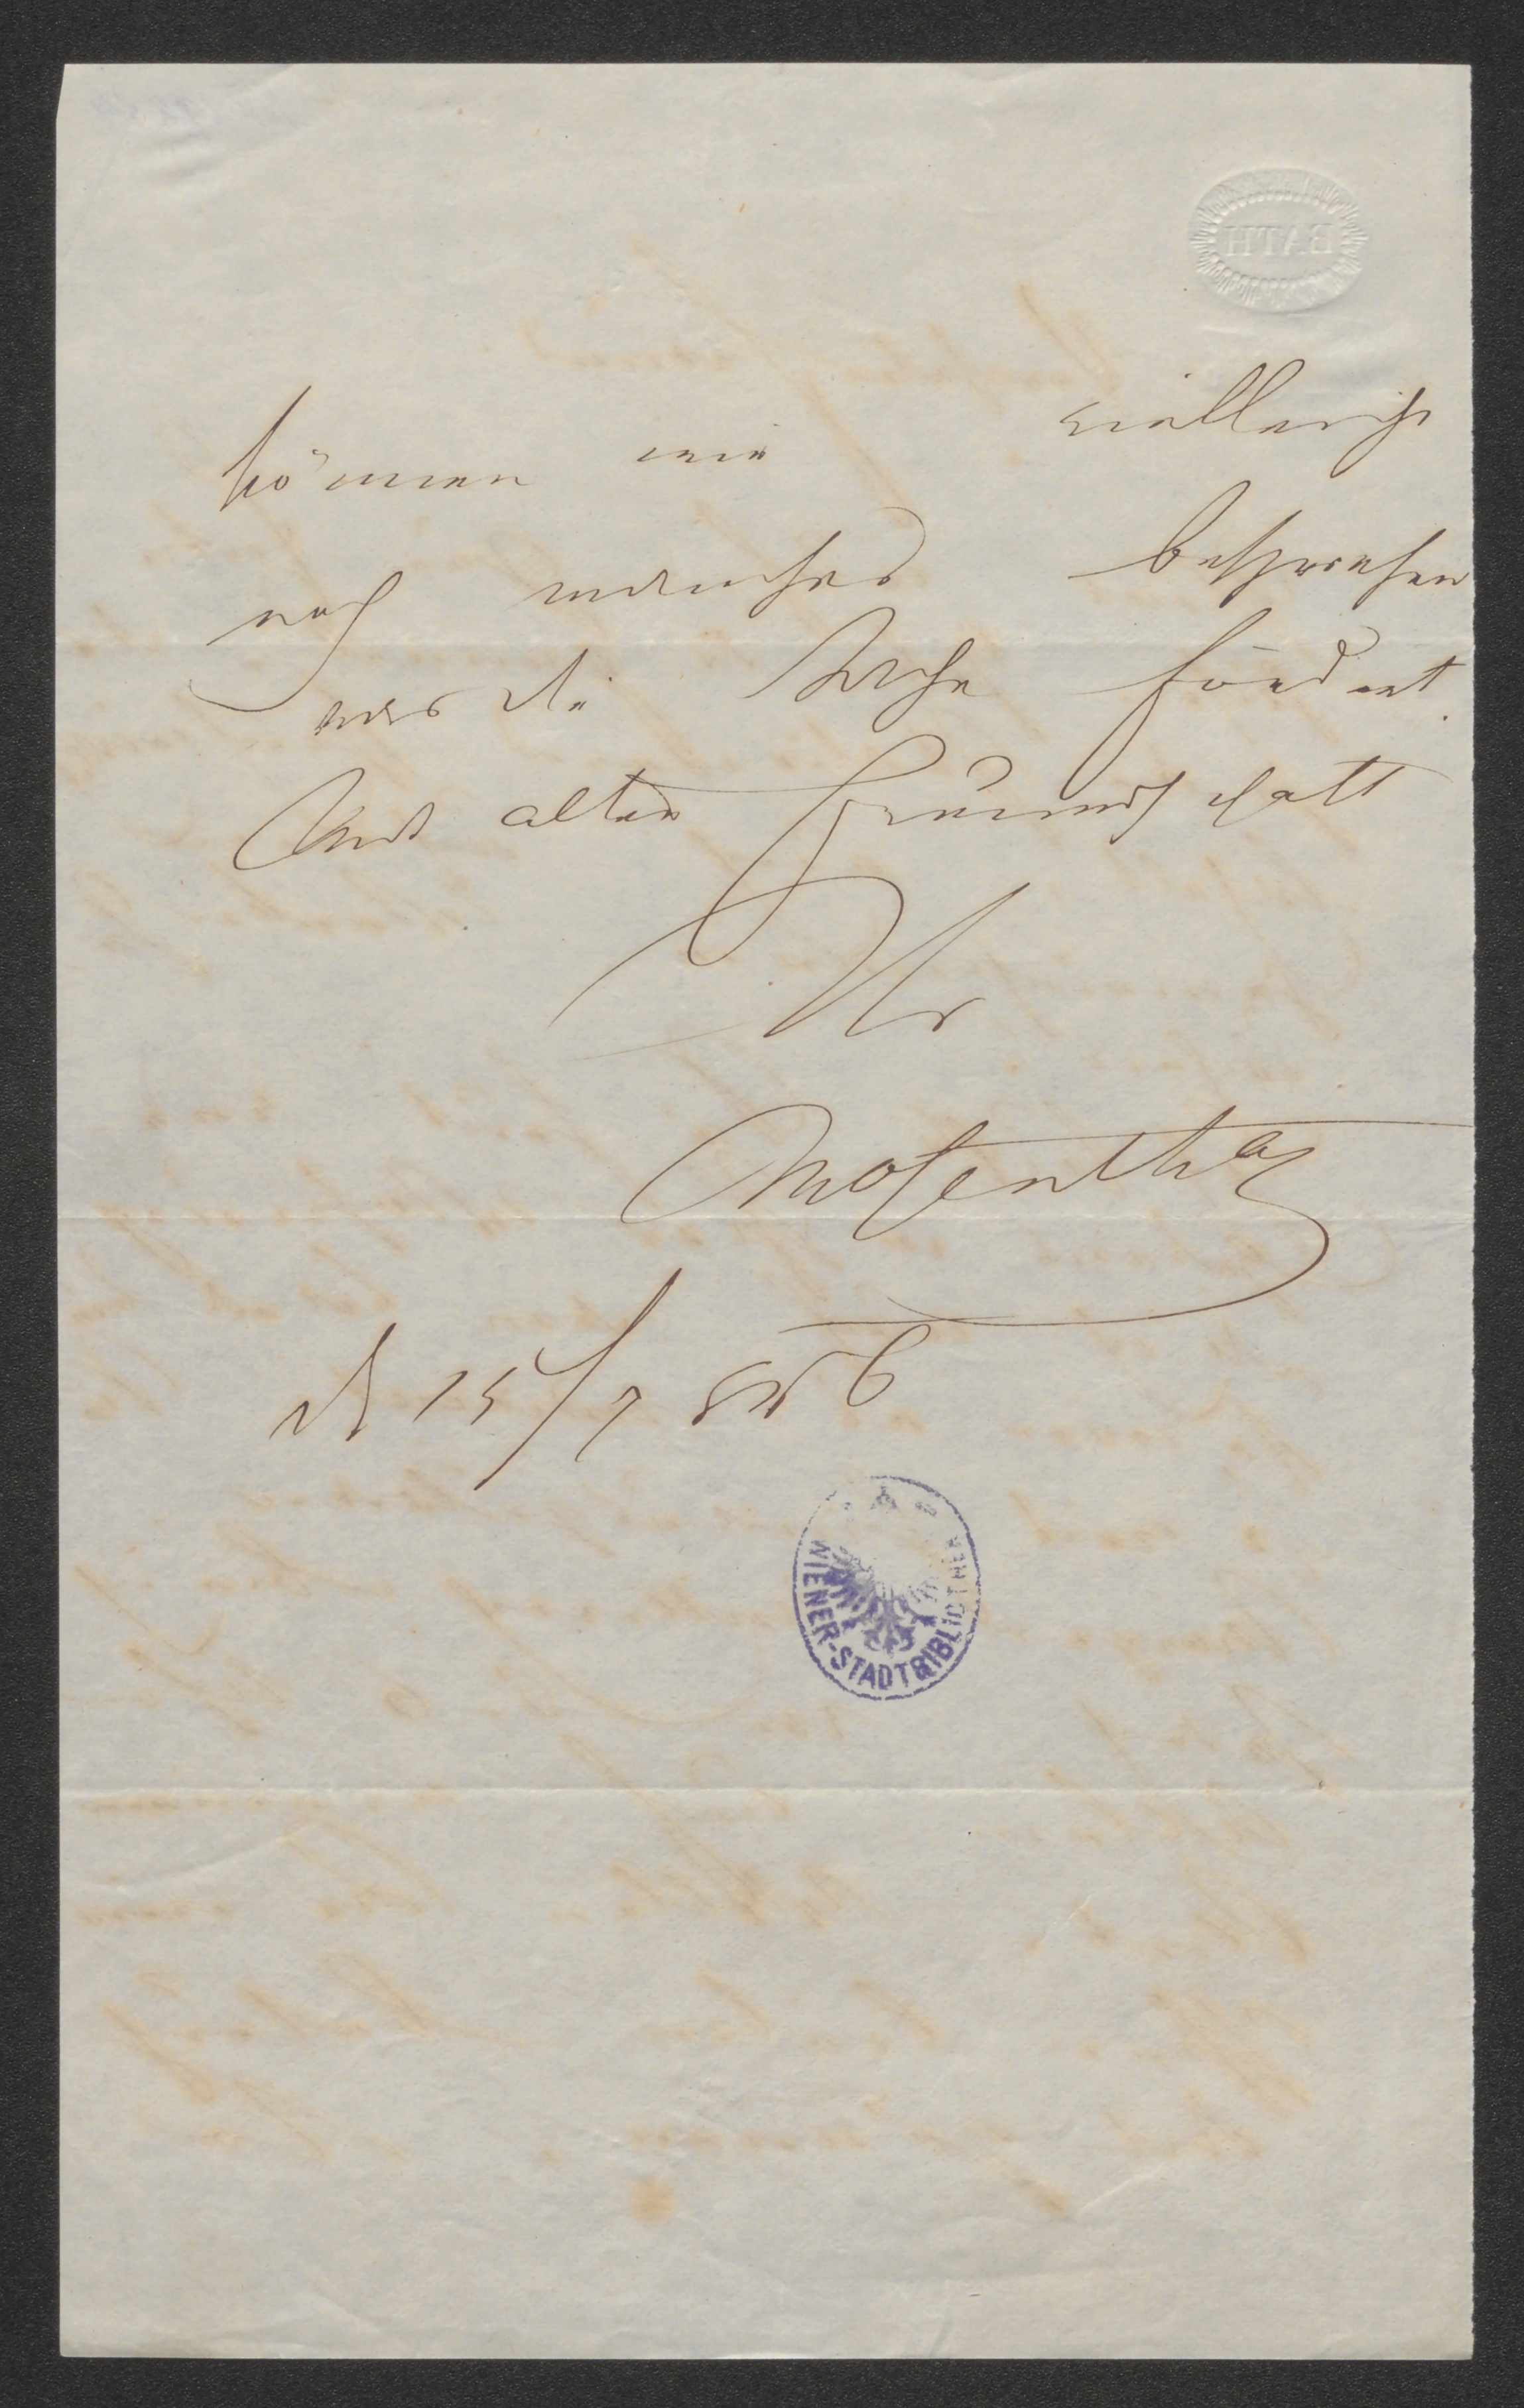 BATH
können wir vielleicht
noch manches besprechen
was die Sache fördert.
Mit alter Freundschaft
Ihr
Mosenthal
d 15/7 856
WIENER-STADTBIBLIOTHEK